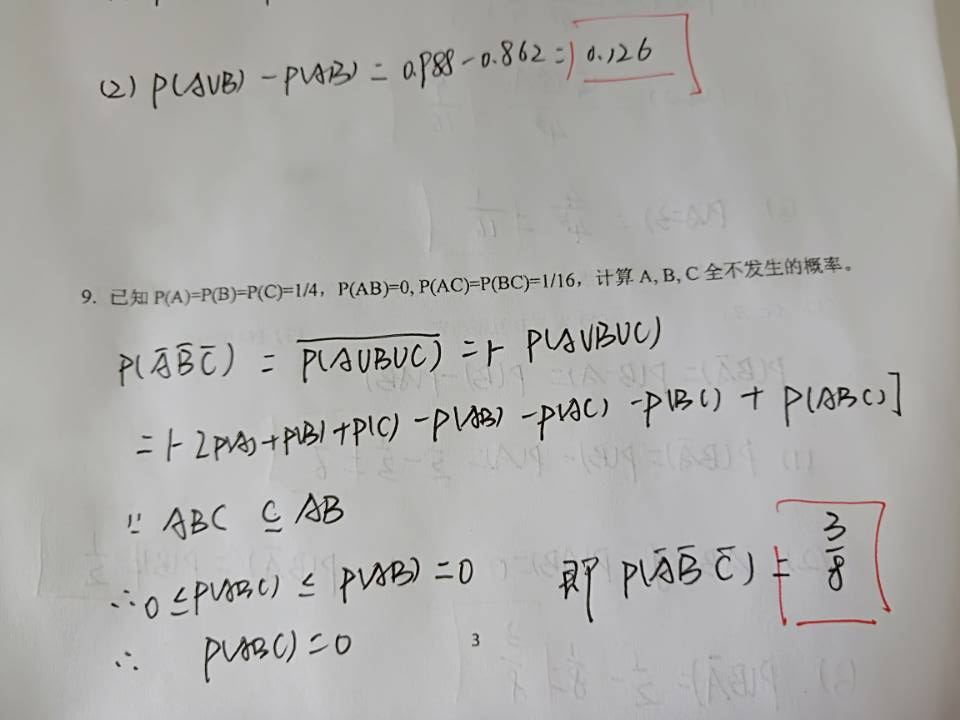 (2) P(A∪B) - P(AB) = 0.988 - 0.862 = 0.126
9. 已知 P(A)=P(B)=P(C)=1/4，P(AB)=0, P(AC)=P(BC)=1/16，计算 A, B, C 全不发生的概率。
P(A̅B̅C̅) = \overline{P(A∪B∪C)} = 1- P(A∪B∪C)
= 1- [P(A)+P(B)+P(C) -P(AB) -P(AC) -P(BC) + P(ABC)]
∵ ABC ⊆ AB
∴ 0 ≤ P(ABC) ≤ P(AB) = 0 即 P(A̅B̅C̅) = 3/8
∴ P(ABC) = 0
3